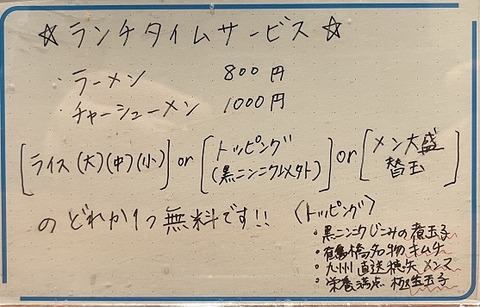 ☆ランチタイムサービス☆
・ラーメン 800円
・チャーシューメン 1000円
[ライス(大)(中)(小)] or [トッピング or [メン大盛
替玉]
のどれか1つ無料です!!
〈トッピング〉
・黒ニンニクじこみの煮玉子
名物キムチ
・九州直送 メンマ
・栄養満点 玉子